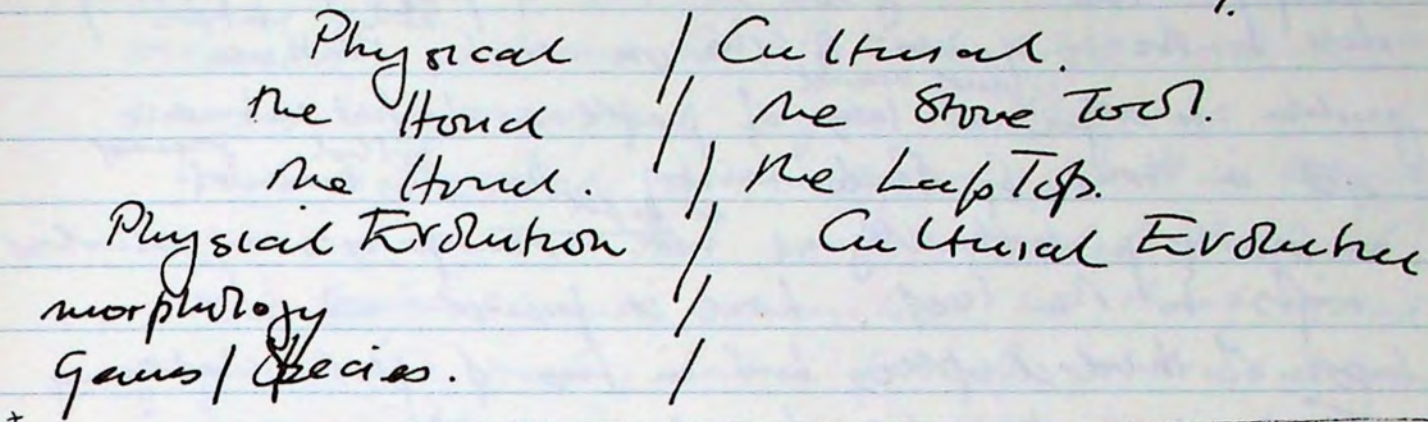 Physical / Cultural.
the Hand / the Stone Tool.
the Hand. / the Lap Top.
Physical Evolution / Cultural Evolution
morphology /
Genus / Species. /